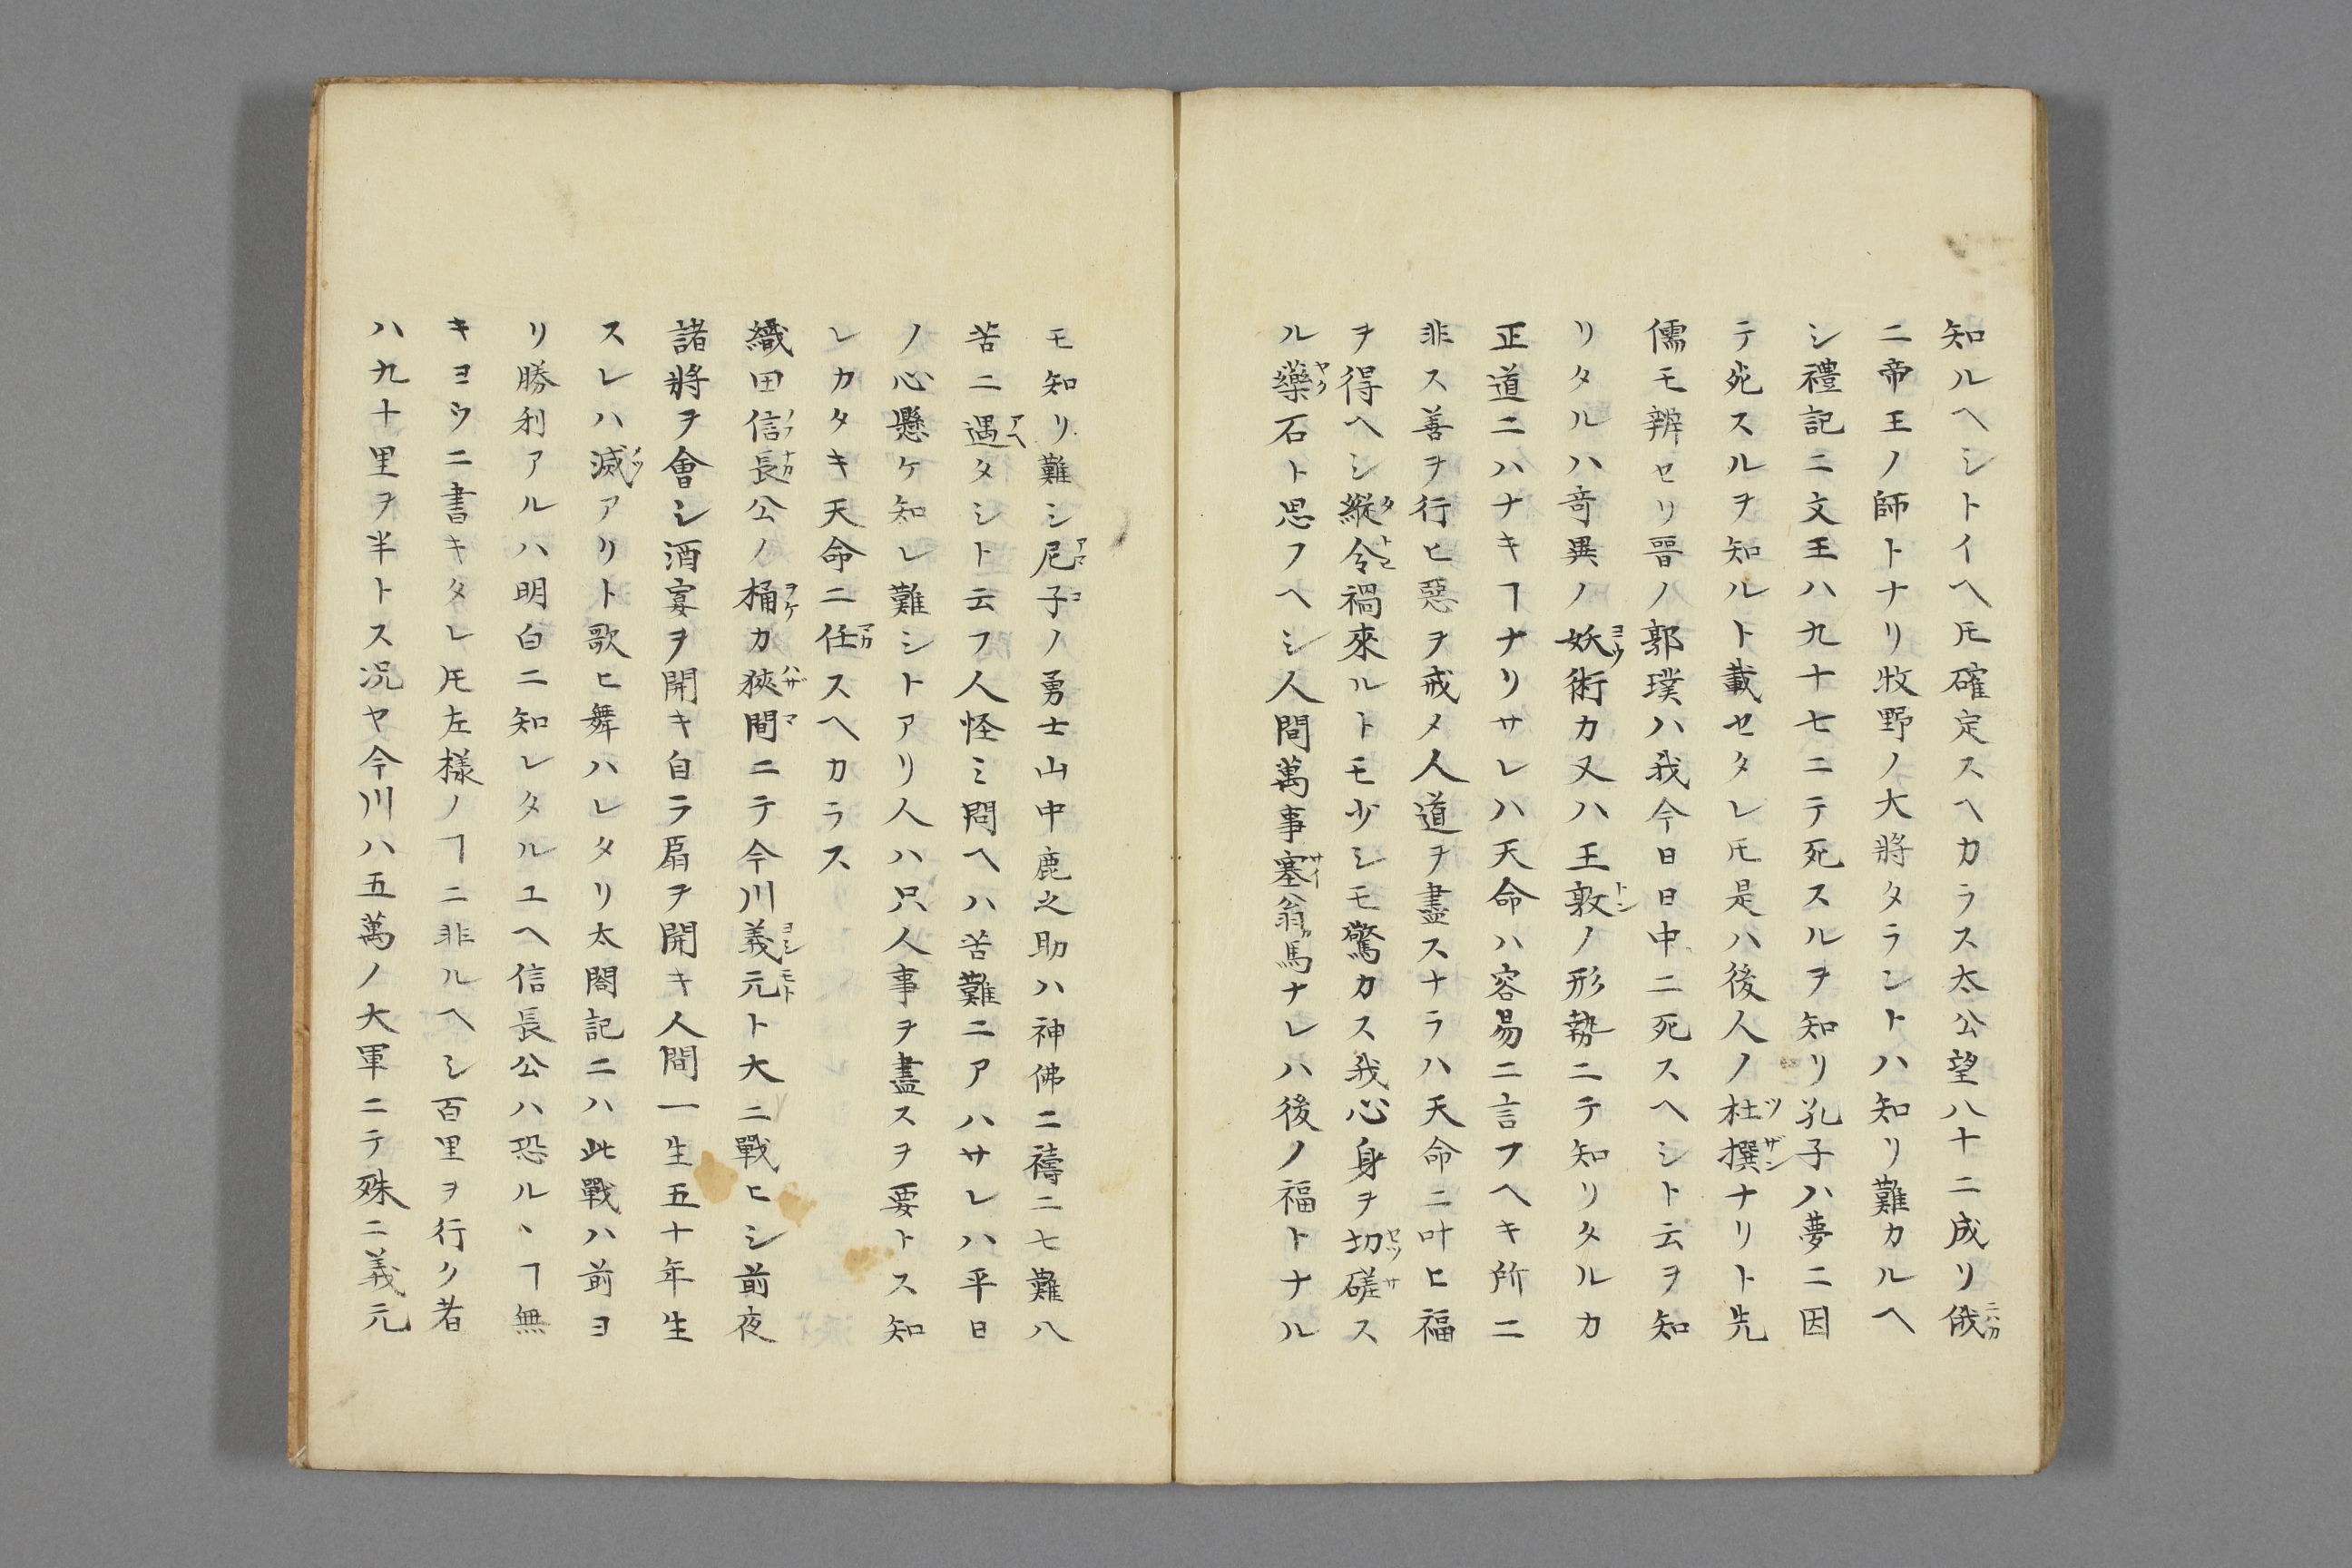 知ルヘシトイヘ𪜈確定スヘカラス太公望八十二成リ俄
ニ帝王ノ師トナリ牧野ノ大將タラントハ知リ難カルヘ
シ禮記ニ文王ハ九十七ニテ死スルヲ知リ孔子ハ夢ニ因
テ死スルヲ知ルト載セタレ𪜈是ハ後人ノ杜撰ナリト先
儒モ辨セリ晋ノ郭璞ハ我今日日中ニ死スヘシト云ヲ知
リタルハ竒異ノ妖術カ又ハ王敦ノ形勢ニテ知リタルカ
正道ニハナキヿナリサレハ天命ハ容易ニ言フヘキ所ニ
非ス善ヲ行ヒ惡ヲ戒メ人道ヲ盡スナラハ天命ニ叶ヒ福
ヲ得ヘシ縱令禍來ルトモ少シモ驚カス我心身ヲ切磋ス
ル藥石ト思フヘシ人間萬事塞翁馬ナレハ後ノ福トナル
モ知リ難シ尼子ノ勇士山中鹿之助ハ神佛ニ禱ニ七難八
苦ニ遇タシト云フ人怪ミ問ヘハ苦難ニアハサレハ平日
ノ心懸ケ知レ難シトアリ人ハ只人事ヲ盡スヲ要トス知
レカタキ天命ニ任スヘカラス
織田信長公ノ桶カ狹間ニテ今川義元ト大ニ戰ヒシ前夜
諸將ヲ會シ酒宴ヲ開キ自ラ扇ヲ開キ人間一生五十年生
スレハ滅アリト歌ヒ舞ハレタリ太閤記ニハ此戰ハ前ヨ
リ勝利アルハ明白ニ知レタルユヘ信長公ハ恐ルヽヿ無
キヨウニ書キタレ𪜈左樣ノヿニ非ルヘシ百里ヲ行ク者
ハ九十里ヲ半トス况ヤ今川ハ五萬ノ大軍ニテ殊ニ義元